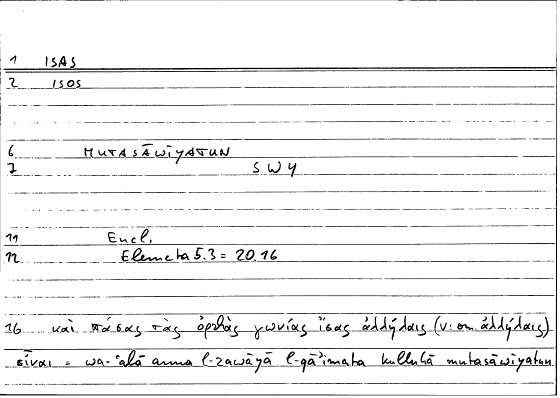 1 ISAS
2 ISOS
6 MUTASĀWIYATUN
7 S W Y
11 Eucl.
12 Elementa 5.3 = 20.16
16 καὶ πάσας τὰς ὀρθὰς γωνίας ἴσας ἀλλήλαις (v: om. ἀλλήλαις)
εἶναι = wa-ʿalā anna l-zawāyā l-qāʾimata kullahā mutasāwiyatun